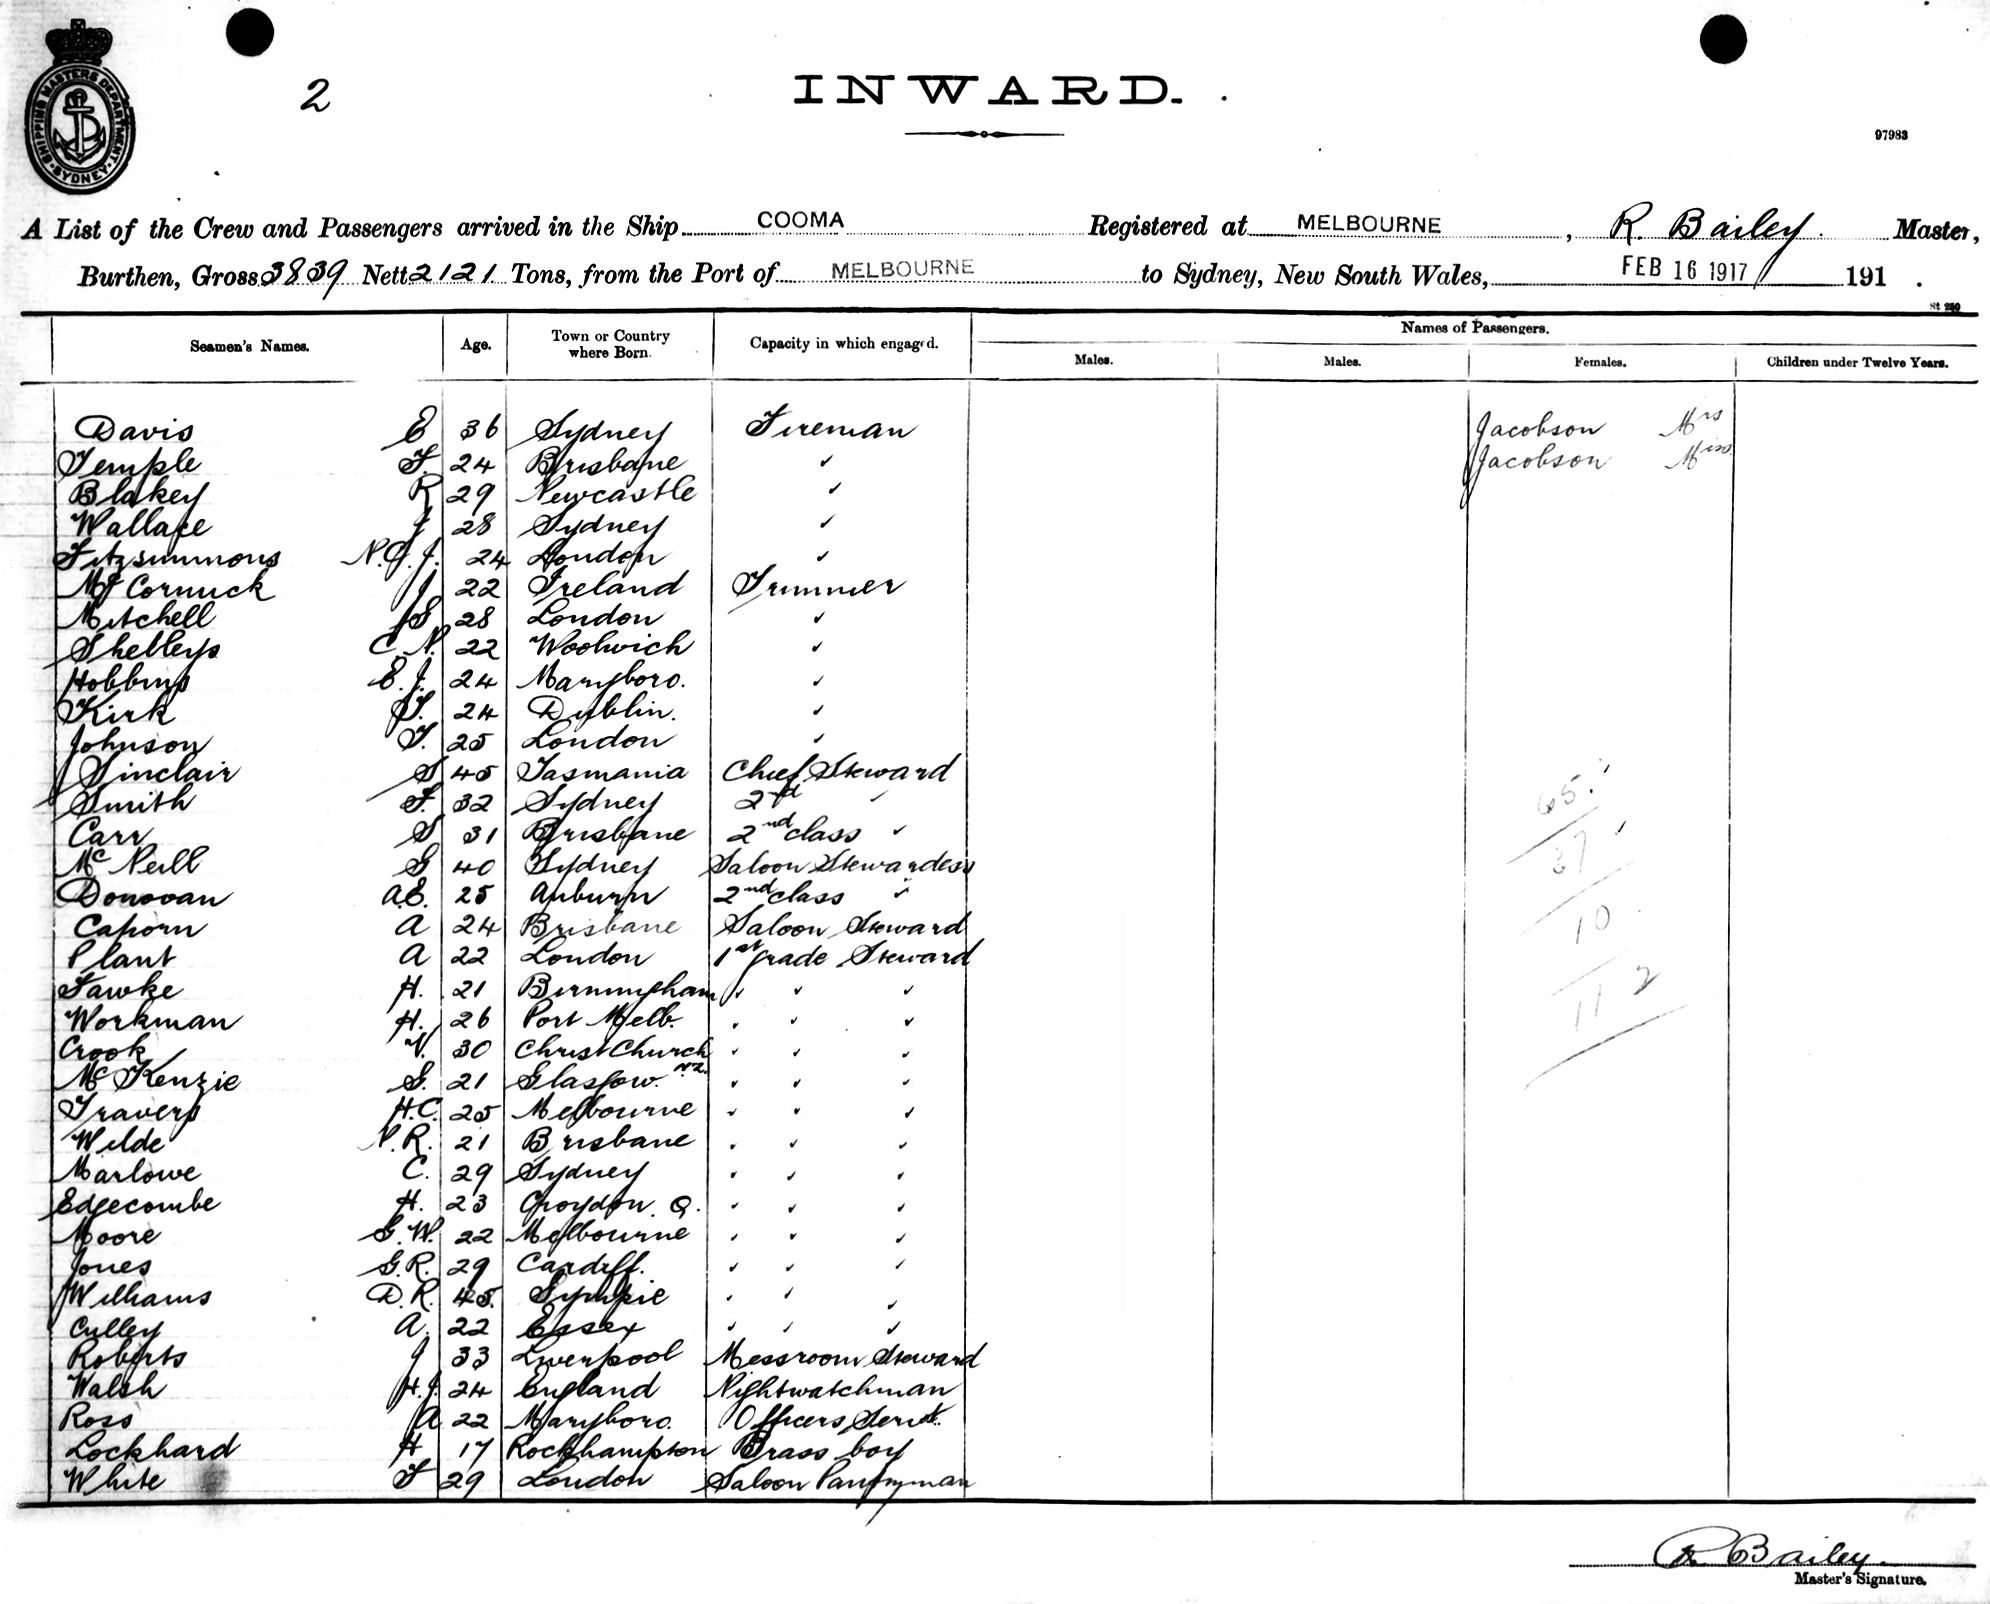 SHIPPING MASTERS DEPARTMENT
SYDNEY
2
INWARD.
97983
A List of the Crew and Passengers arrived in the Ship COOMA Registered at MELBOURNE, R. Bailey. Master,
Burthen, Gross 3839 Nett 2121 Tons, from the Port of MELBOURNE to Sydney, New South Wales, FEB 16 1917 191 .
St 250
Seamen's Names. Age. Town or Country where Born. Capacity in which engaged. Names of Passengers.
Males. Males. Females. Children under Twelve Years.
Davis E 36 Sydney Fireman Jacobson Mrs
Temple F. 24 Brisbane ✓ Jacobson Miss
Blakey R 29 Newcastle ✓
Wallace J 28 Sydney ✓
Fitzsimmons N.G.J. 24 London ✓
McCormick J 22 Ireland Trimmer
Mitchell S 28 London ✓
Shelleys C N. 22 Woolwich ✓
Hobbins E. J. 24 Maryboro. ✓
Kirk T. 24 Dublin. ✓
Johnson T. 25 London ✓
Sinclair S 45 Tasmania Chief Steward
Smith F. 32 Sydney 2nd ✓
Carr S 31 Brisbane 2nd class ✓
McNeill G 40 Sydney Saloon Stewardess
Donovan A.E. 25 Auburn 2nd class ✓
Caporn A 24 Brisbane Saloon Steward
Plant A 22 London 1st grade Steward
Fawke H. 21 Birmingham ✓ ✓ ✓
Workman H. 26 Port Melb. ✓ ✓ ✓
Crook V. 30 Christ Church N.Z. ✓ ✓ ✓
McKenzie G. 21 Glasgow. ✓ ✓ ✓
Travers H.C. 25 Melbourne ✓ ✓ ✓
Wilde N.R. 21 Brisbane ✓ ✓ ✓
Marlowe C. 29 Sydney ✓ ✓ ✓
Edgecombe H. 23 Croydon Q. ✓ ✓ ✓
Moore G.W. 22 Melbourne ✓ ✓ ✓
Jones G.R. 29 Cardiff. ✓ ✓ ✓
Williams D.R. 45. Gympie ✓ ✓ ✓
Culley A. 22 Essex ✓ ✓ ✓
Roberts J 33 Liverpool Messroom Steward
Walsh H.J. 24 England Nightwatchman
Ross A 22 Maryboro. Officers Servt.
Lockhard H 17 Rockhampton Brass boy
White F 29 London Saloon Pantryman
65
37
10
112
R Bailey.
Master's Signature.